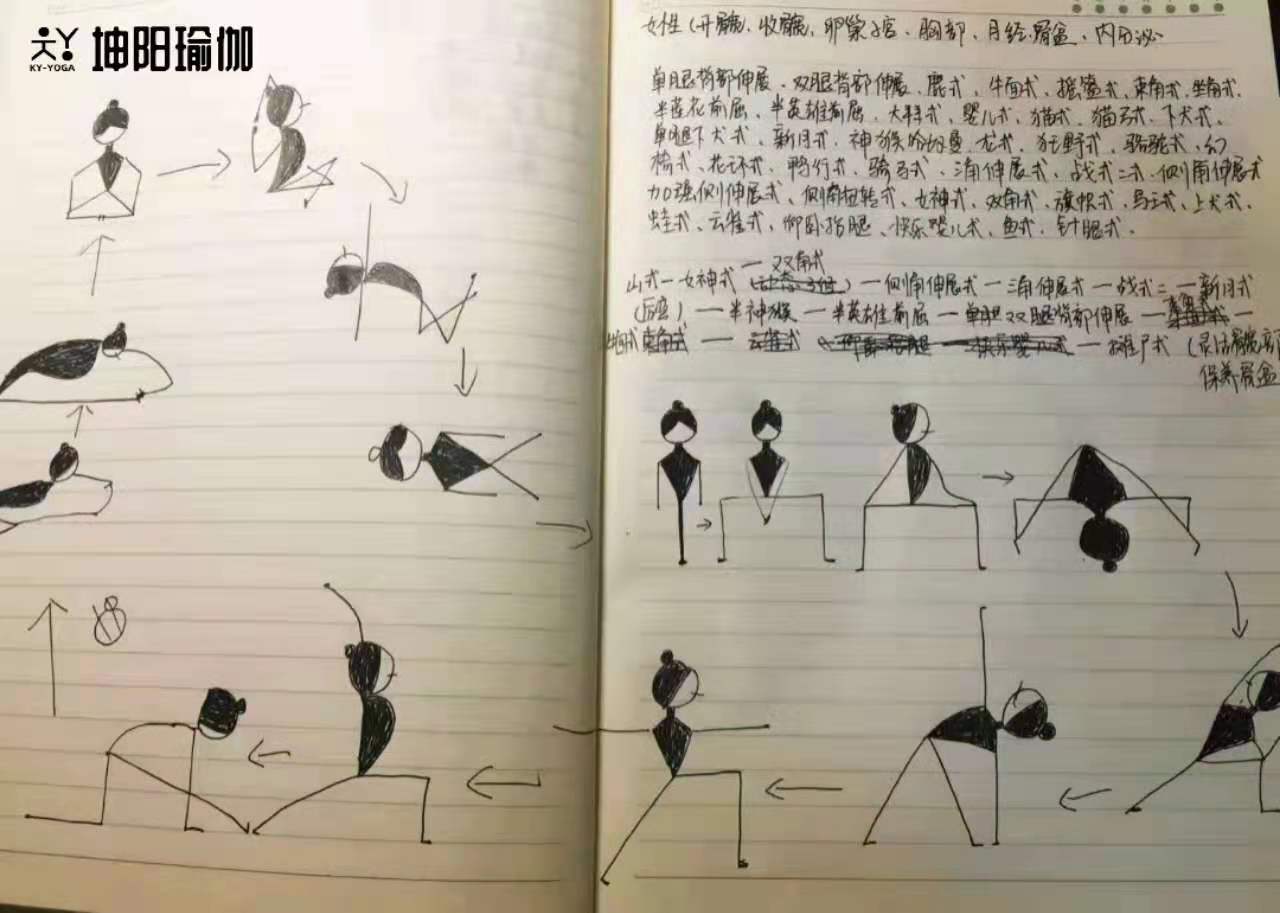 坤阳瑜伽
KY-YOGA
女性（开髋、收髋、卵巢子宫、胸部、月经、骨盆、内分泌
单腿背部伸展、双腿背部伸展、鹿式、牛面式、摇篮式、束角式、坐角式、
半莲花前屈、半英雄前屈、大拜式、婴儿式、猫式、猫弓式、下犬式、
单腿下犬式、新月式、神猴哈奴曼、龙式、狂野式、骆驼式、幻
椅式、花环式、鸭行式、骑马式、三角伸展式、战式二式、侧角伸展式
加强侧伸展式、侧角扭转式、女神式、双角式、旗帜式、鸟王式、上犬式、
蛙式、云雀式、仰卧抬腿、快乐婴儿式、鱼式、针眼式.
— 双角式
山式—女神式 —侧角伸展式—三角伸展式—战式二—新月式
（后弯）—半神猴—半英雄前屈—单腿双腿背部伸展—
束角式—云雀式 —摊尸式（灵活髋部
保养骨盆